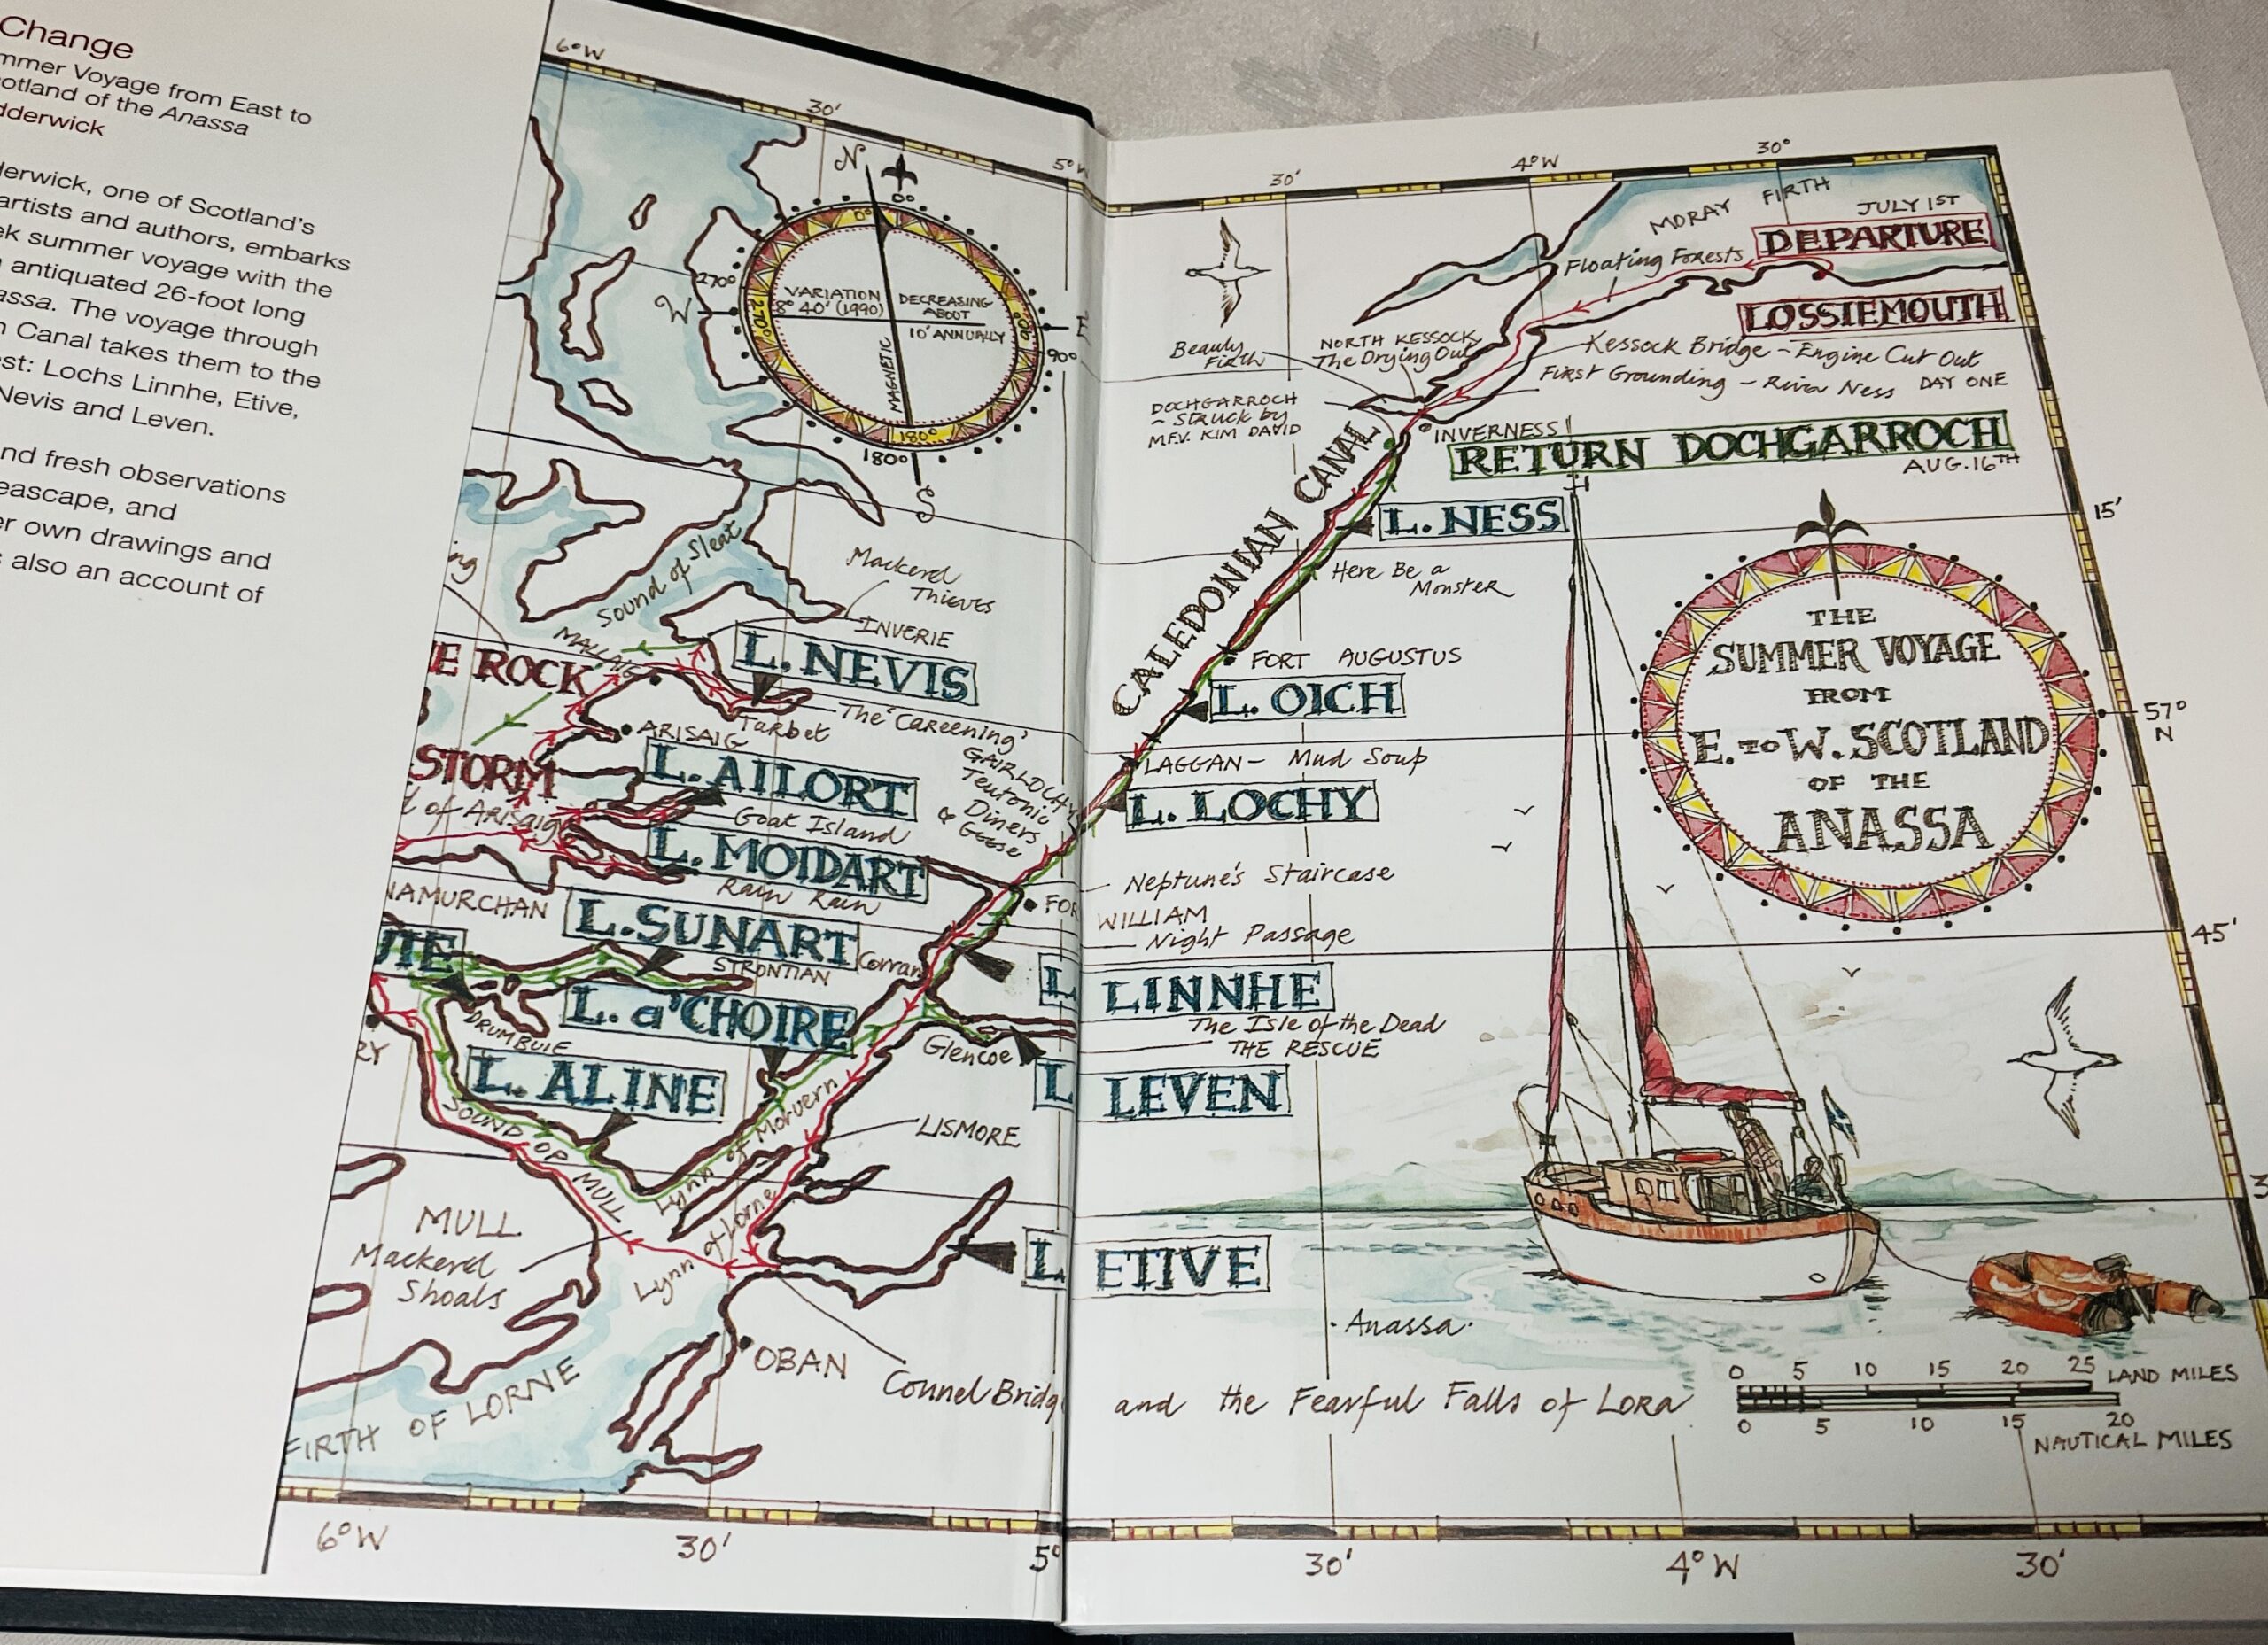 Change
mmer Voyage from East to
otland of the Anassa
dderwick
derwick, one of Scotland's
artists and authors, embarks
ek summer voyage with the
antiquated 26-foot long
assa. The voyage through
n Canal takes them to the
est: Lochs Linnhe, Etive,
Nevis and Leven.
nd fresh observations
eascape, and
er own drawings and
s also an account of
6°W
30'
5°W
N
0°
0°
W
270°
270°
VARIATION
8° 40' (1990)
DECREASING
ABOUT
10' ANNUALLY
MAGNETIC
E
90°
90°
180°
180°
S
Sound of Sleat
Mackerel
Thieves
INVERIE
ing
MALLAIG
L. NEVIS
E ROCK
The 'Careening'
Tarbet
ARISAIG
L. AILORT
STORM
d of Arisaig
Goat Island
GAIRLOCHY
Teutonic
Diners
& Geese
L. MOIDART
Rain Rain
NAMURCHAN
L. SUNART
STRONTIAN
Corran
FOR
UIE
L. a'CHOIRE
DRUMBUIE
RY
Glencoe
L. ALINE
SOUND OF MULL
Lynn of Morvern
LISMORE
Lynn of Lorne
MULL
Mackerel
Shoals
OBAN
Connel Bridg
FIRTH OF LORNE
6°W
30'
5°
30'
4°W
30°
MORAY FIRTH
JULY 1ST
DEPARTURE
Floating Forests
LOSSIEMOUTH
Beauly
Firth
NORTH KESSOCK
The Drying Out
Kessock Bridge - Engine Cut Out
First Grounding - River Ness DAY ONE
DOCHGARROCH
- Struck by
M.F.V. KIM DAVID
INVERNESS
RETURN DOCHGARROCH
AUG. 16TH
CALEDONIAN CANAL
L. NESS
15'
Here Be a
Monster
FORT AUGUSTUS
L. OICH
LAGGAN - Mud Soup
L. LOCHY
THE
SUMMER VOYAGE
FROM
E. TO W. SCOTLAND
OF THE
ANASSA
57°
N
Neptune's Staircase
WILLIAM
Night Passage
45'
L LINNHE
The Isle of the Dead
THE RESCUE
L LEVEN
3
L ETIVE
· Anassa ·
and the Fearful Falls of Lora
0 5 10 15 20 25 LAND MILES
0 5 10 15 20
NAUTICAL MILES
30'
4°W
30'